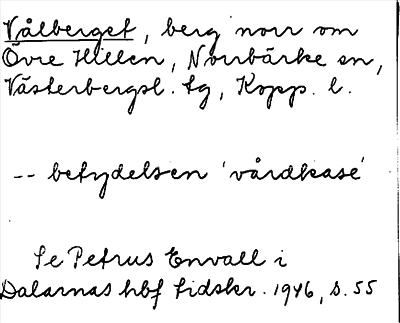 Vålberget, berg norr om
Övre Hillen, Norrbärke sn,
Västerbergsl. tg, Kopp. l.
-- betydelsen 'vårdkase'
Se Petrus Envall i
Dalarnas hbf tidskr. 1946, s. 55